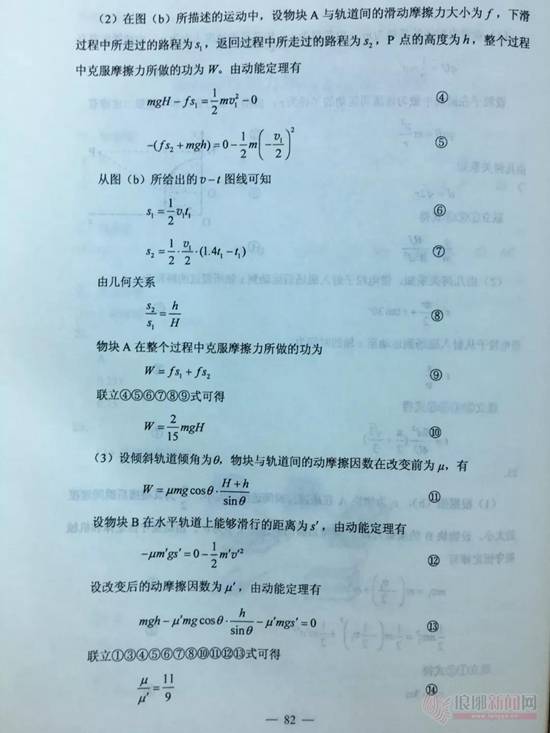 （2）在图（b）所描述的运动中，设物块 A 与轨道间的滑动摩擦力大小为 f，下滑
过程中所走过的路程为 s₁，返回过程中所走过的路程为 s₂，P 点的高度为 h，整个过程
中克服摩擦力所做的功为 W。由动能定理有
mgH − fs₁ = 1/2 mv₁² − 0 ④
−(fs₂ + mgh) = 0 − 1/2 m(−v₁/2)² ⑤
从图（b）所给出的 v−t 图线可知
s₁ = 1/2 v₁t₁ ⑥
s₂ = 1/2 · v₁/2 · (1.4t₁ − t₁) ⑦
由几何关系
s₂/s₁ = h/H ⑧
物块 A 在整个过程中克服摩擦力所做的功为
W = fs₁ + fs₂ ⑨
联立④⑤⑥⑦⑧⑨式可得
W = 2/15 mgH ⑩
（3）设倾斜轨道倾角为θ，物块与轨道间的动摩擦因数在改变前为 μ，有
W = μmg cosθ · (H + h)/sinθ ⑪
设物块 B 在水平轨道上能够滑行的距离为 s′，由动能定理有
−μm′gs′ = 0 − 1/2 m′v′² ⑫
设改变后的动摩擦因数为 μ′，由动能定理有
mgh − μ′mg cosθ · h/sinθ − μ′mgs′ = 0 ⑬
联立①③④⑤⑥⑦⑧⑩⑪⑫⑬式可得
μ/μ′ = 11/9 ⑭
— 82 —
琅琊新闻网